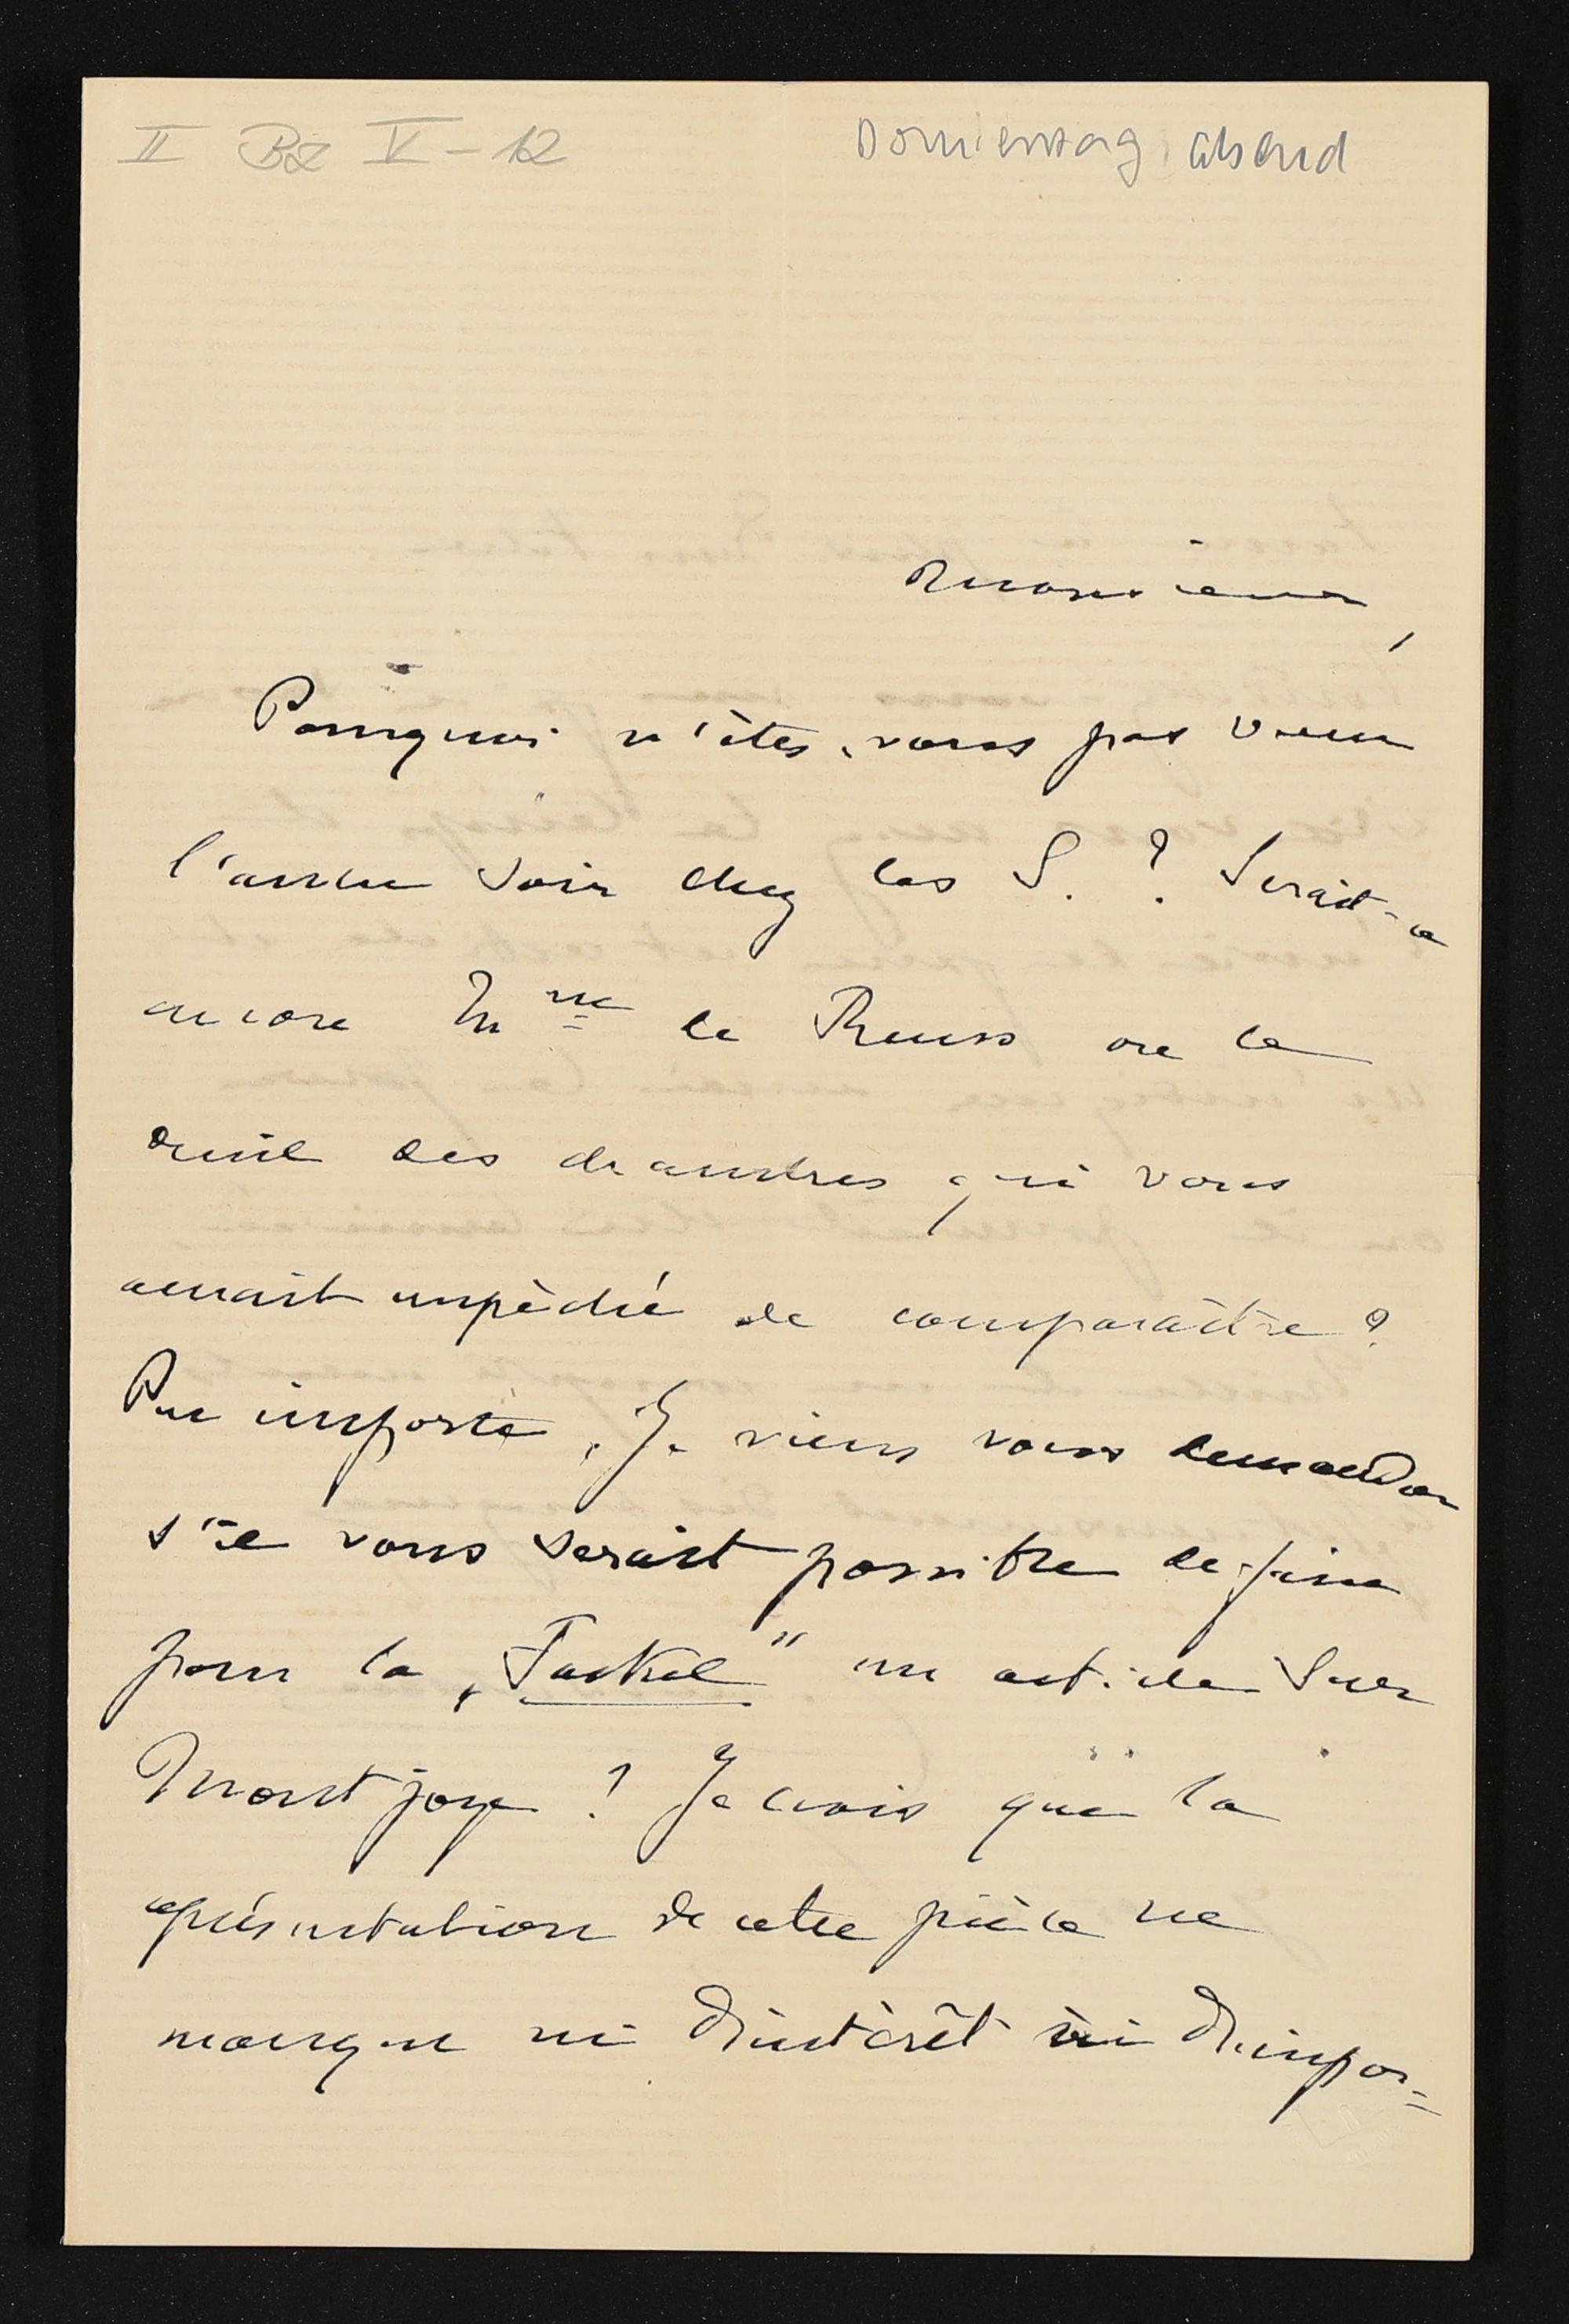 II BZ V-12
Donnerstag abend
Monsieur,
Pourquoi n'êtes-vous pas venu
l'autre soir chez les S.? Serait-ce
encore Mme de Reuss ou le
deuil des chambres qui vous
aurait empêché de comparaître?
Peu importe. Je viens vous demander
s'il vous serait possible de faire
pour la „Fackel" un article sur
Montjoye? Je crois que la
représentation de cette pièce ne
manque ni d'intérêt ni d'impor=